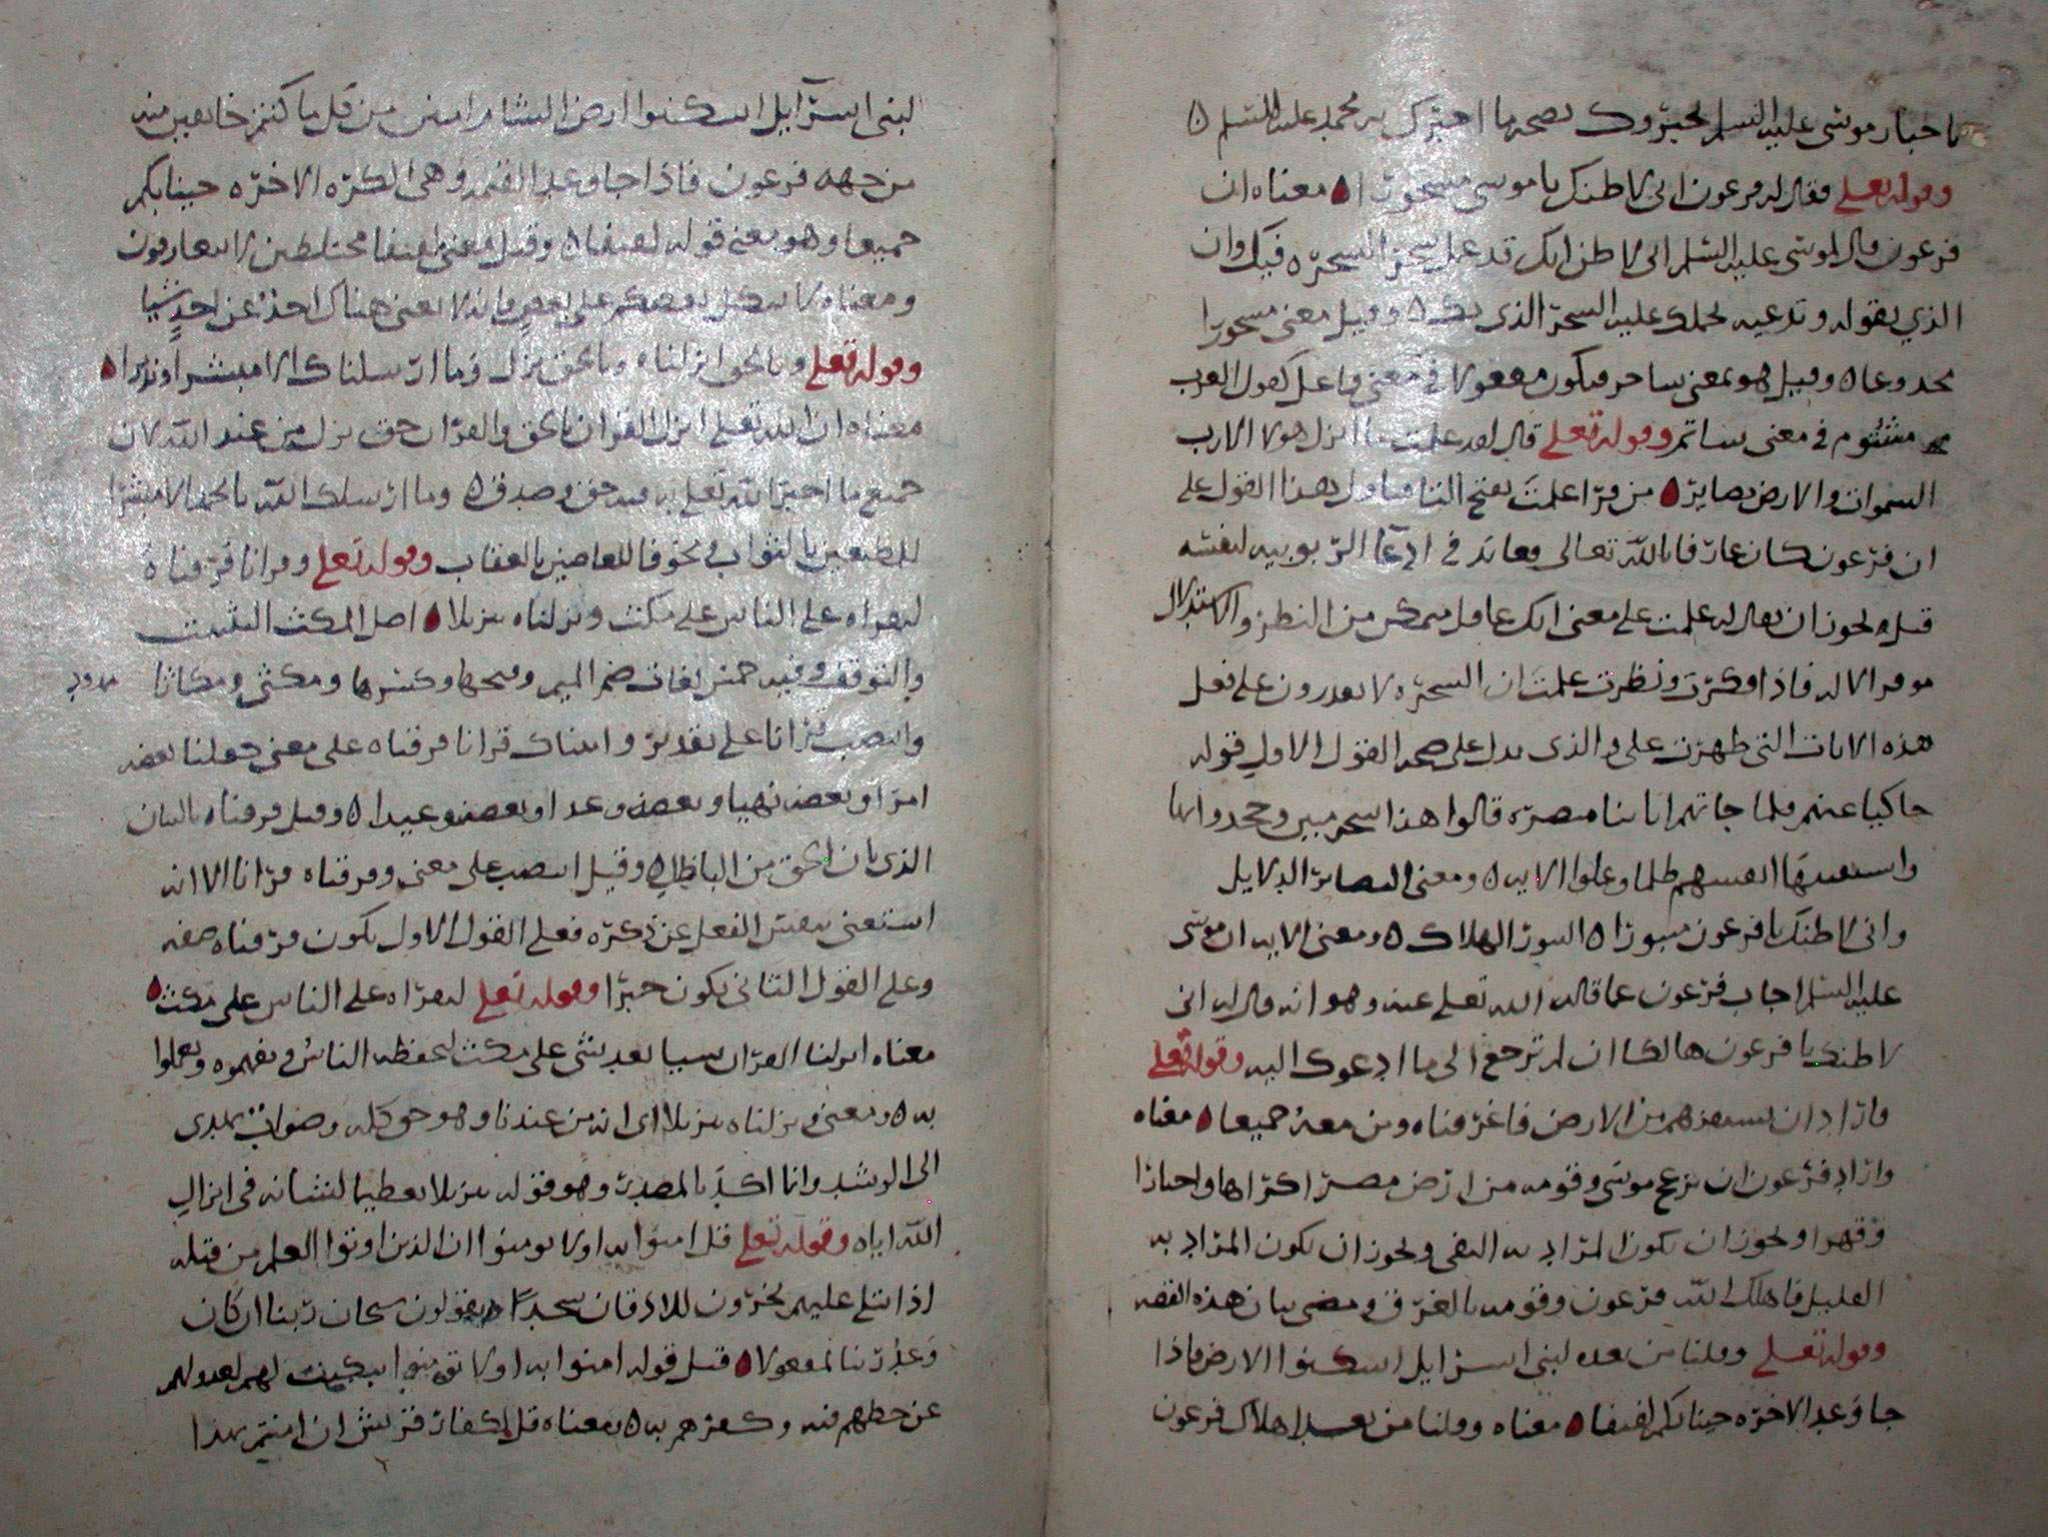 باخبار موسى عليه السلم لخبروك بصحه ما اخبرك به محمد عليه السلم ه
وقوله تعلى فقال له فرعون انى لاظنك يا موسى مسحورا ه معناه ان
فرعون قال لموسى عليه السلم انى لاظن انك قد عمل سحر السحره فيك وان
الذي يقوله وتدعيه لحملك عليه السحر الذى بك ه وقيل معنى مسحورا
مخدوعا ه وقيل هو بمعنى ساحر فيكون مفعولا في معنى فاعل كقول العرب
مشئوم في معنى شائم وقوله تعلى قال لقد علمت ما انزل هولا الا رب
السموات والارض بصاير ه من قرا علمت بفتح التا فتاول بهذا القول على
ان فرعون كان عارفا بالله تعالى معاند في ادعا الربوبيه لنفسه
قيل يجوز ان يقال له علمت على معنى انك عاقل متمكن من النظر والاستدلال
موفر الاله فاذا فكرت ونظرت علمت ان السحره لا يقدرون على فعل
هذه الايات التى ظهرت على والذى يدل على صحه القول الاول قوله
حاكيا عنهم فلما جاتهم اياتنا مبصره قالوا هذا سحر مبين وجحدوا بها
واستيقنتها انفسهم ظلما وعلوا الايه ه ومعنى البصاير الدلايل
وانى لاظنك يا فرعون مثبورا ه الثبور الهلاك ه ومعنى الايه ان موسى
عليه السلم اجاب فرعون عما قاله الله تعلى عنه وهو انه قال له انى
لاظنك يا فرعون هالكا ان لم ترجع الى ما ادعوك اليه وقوله تعلى
فاراد ان يستفزهم من الارض فاغرقناه ومن معه جميعا ه معناه
واراد فرعون ان يزعج موسى وقومه من ارض مصر اكراها واجبارا
وقهرا ويجوز ان يكون المراد به النفى ويجوز ان يكون المراد به
القتل فاهلك الله فرعون وقومه بالغرق ومضى بيان هذه القصه
وقوله تعلى وقلنا من بعده لبنى اسرايل اسكنوا الارض فاذا
جا وعد الاخره جينا بكم لفيفا ه معناه وقلنا من بعد اهلاك فرعون
لبنى اسرآيل اسكنوا ارض الشام امنين من قبل ما كنتم خايفين منه
من جهه فرعون فاذا جا وعد القيمه وهى الكره الاخره جينا بكم
جميعا وهو معنى قوله لفيفا ه وقيل معنى لفيفا مختلطين لا تتعارفون
ومعناه لا يتكل بعضكم على بعض فانه لا يغنى هناك احدٌ عن احدٍ شيا
وقوله تعلى وبالحق انزلناه وبالحق نزل وما ارسلناك الا مبشرا ونذيرا ه
معناه ان الله تعلى انزل القران بالحق والقران حق نزل من عند الله لان
جميع ما اخبر الله تعلى به فيه حق وصدق ه وما ارسلك الله يا محمد الا مبشرا
للمطيعين بالثواب ومخوفا للعاصين بالعقاب وقوله تعلى وقرانا فرقناه
لتقراه على الناس على مكث ونزلناه تنزيلا ه اصل المكث التثبت
والتوقف وفيه خمس لغات ضم الميم وفتحها وكسرها ومكثى ومكاثا ممدود
وانتصب قرانا على تقدير واتيناك قرانا فرقناه على معنى جعلنا بعضه
امرا وبعضه نهيا وبعضه وعدا وبعضه وعيدا ه وقيل فرقناه بالبيان
الذى بان الحق من الباطل ه وقيل انتصب على معنى وفرقناه قرانا الا انه
استغنى بتفسر الفعل عن ذكره فعلى القول الاول يكون فرقناه صفه
وعلى القول الثانى يكون خبرا وقوله تعلى لتقراه على الناس على مكث ه
معناه انزلنا القران شيا بعد شى على مكث ليحفظه الناس ويفهموه ويعملوا
به ه ومعنى ونزلناه تنزيلا اى انه من عندنا وهو حق كله وصواب يهدى
الى الرشد وانما اكد بالمصدر وهو قوله تنزيلا تعظيما لشانه فى انزال
الله اياه وقوله تعلى قل امنوا به او لا تومنوا ان الذين اوتوا العلم من قبله
اذا يتلى عليهم يخرون للاذقان سجدا ويقولون سبحان ربنا ان كان
وعد ربنا لمفعولا ه قيل قوله امنوا به او لا تومنوا تبكيت لهم لعدولهم
عن حظهم فيه وكفرهم به ه ومعناه قل لكفار قريش ان امنتم بهذا